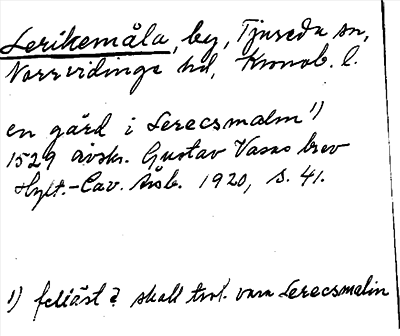 Lerikemåla, by, Tjureda sn,
Norrvidinge hd, Kronob. l.
en gård i Lerecsmalm 1)
1529 avskr. Gustav Vasas brev
Hylt.-Cav. Årsb. 1920, s. 41.
1) felläst? skall trol. vara Lerecsmalin